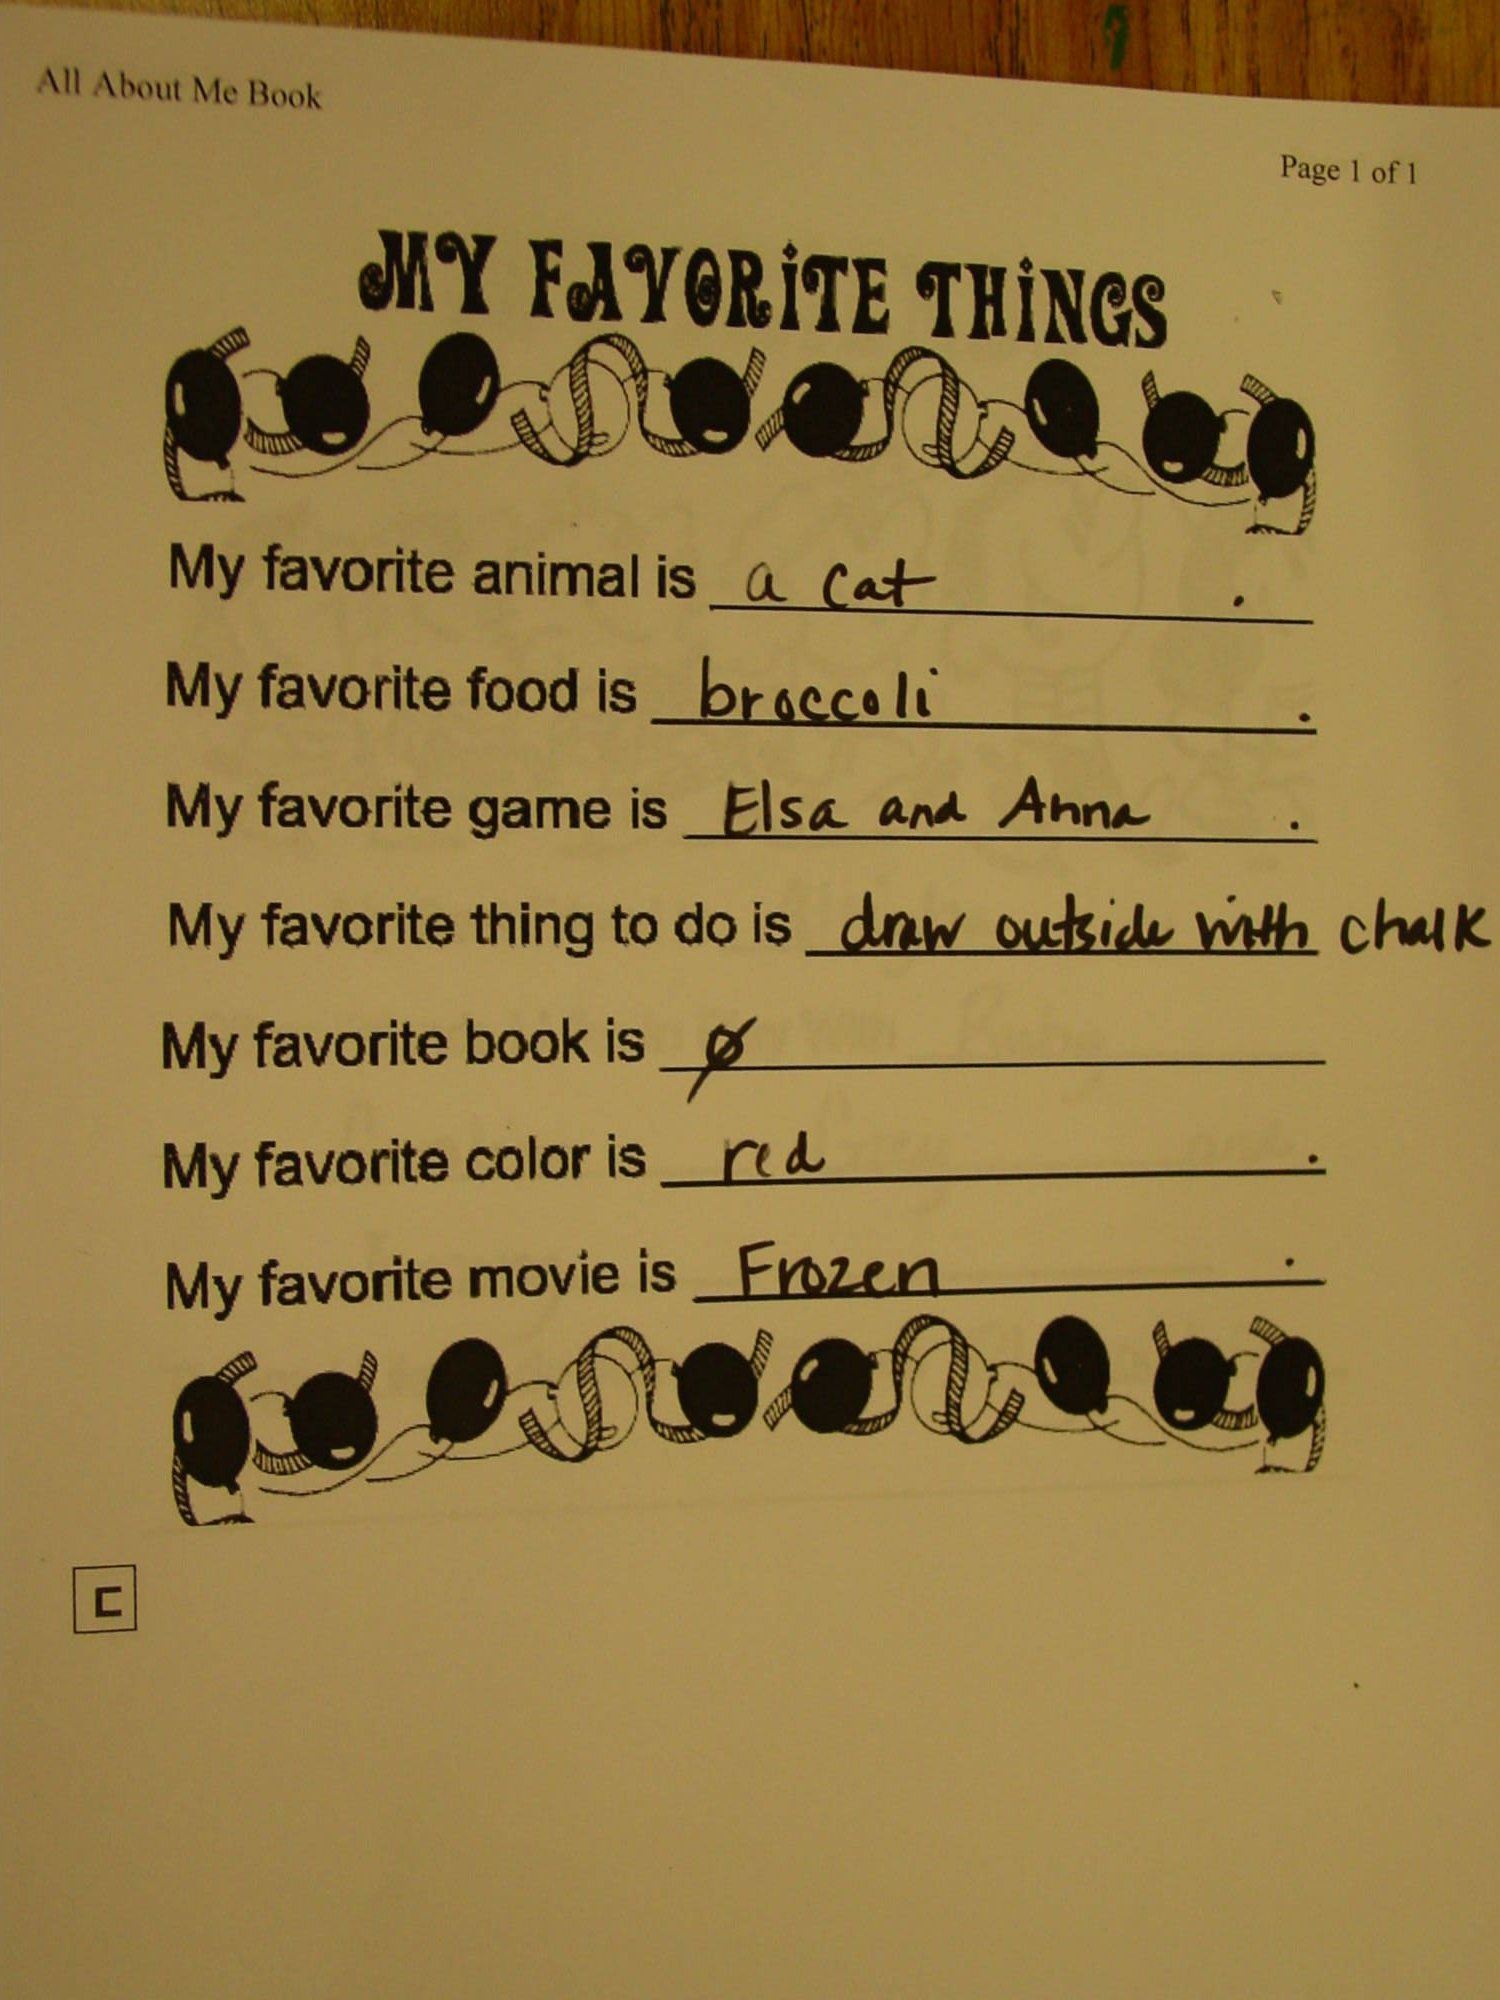 All About Me Book
Page 1 of 1
MY FAVORITE THINGS
My favorite animal is a cat .
My favorite food is broccoli .
My favorite game is Elsa and Anna .
My favorite thing to do is draw outside with chalk
My favorite book is ø
My favorite color is red .
My favorite movie is Frozen .
C